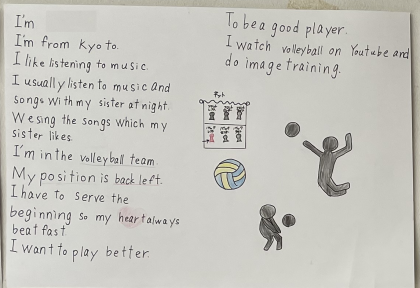 I'm
I'm from Kyoto.
I like listening to music.
I usually listen to music and
songs with my sister at night.
We sing the songs which my
sister likes.
I'm in the volleyball team
My position is back left.
I have to serve the
beginning so my heart always
beat fast
I want to play better.
To be a good player.
I watch volleyball on Youtube and
do image training.
ネット